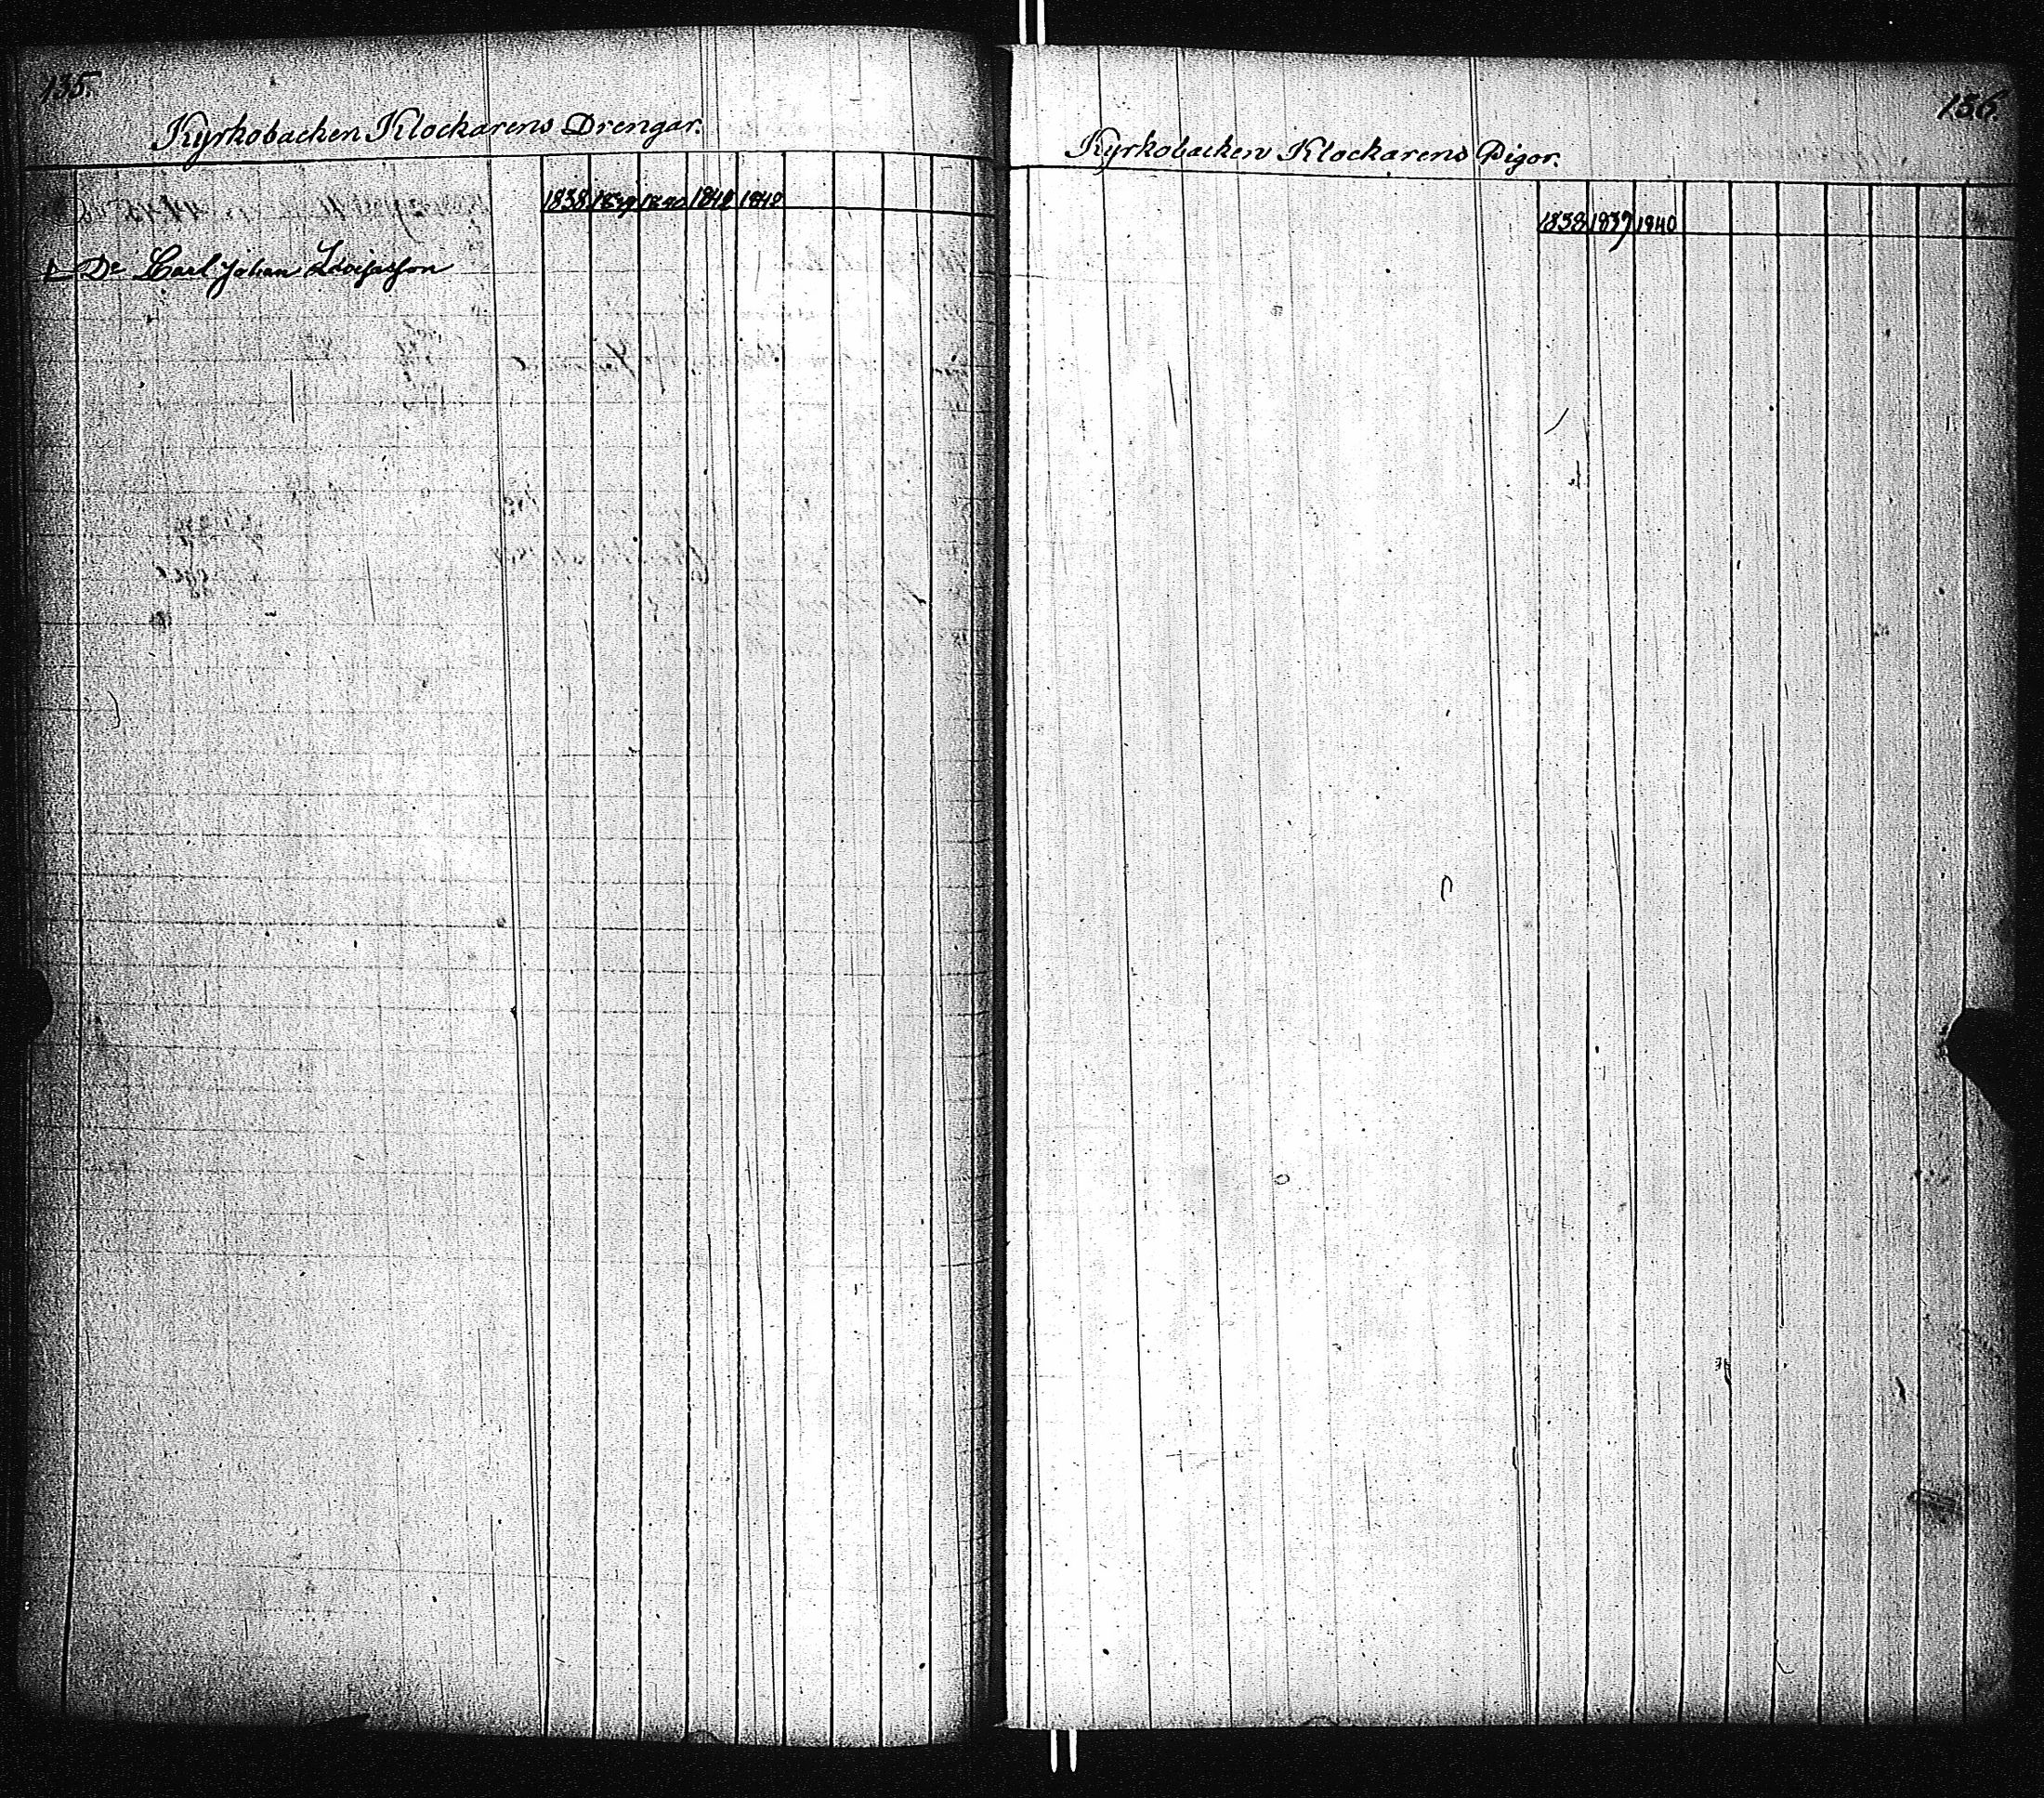 135.
Kyrkobacken Klockarens Drengar.
1838 1839 1840 1842 1842
1 De Carl Johan
136.
Kyrkobacken Klockarens Pigor.
1838 1839 1840